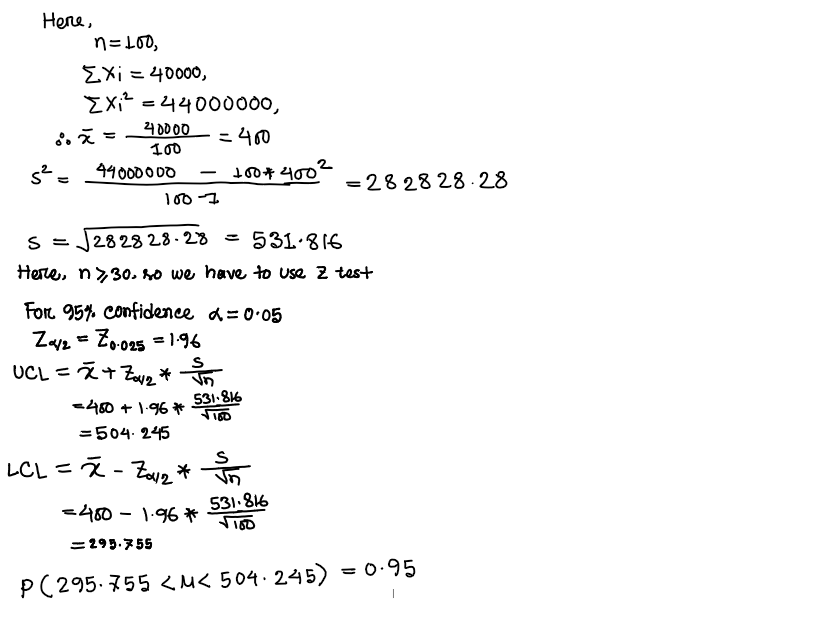 Here,
n=100,
∑Xi = 40000,
∑Xi² = 44000000,
∴ x̄ = 40000/100 = 400
S² = (44000000 - 100*400²)/(100-1) = 282828.28
S = √282828.28 = 531.816
Here, n≥30. so we have to use Z test
For 95% confidence α=0.05
Zα/2 = Z0.025 = 1.96
UCL = x̄ + Zα/2 * S/√n
=400 + 1.96 * 531.816/√100
=504.245
LCL = x̄ - Zα/2 * S/√n
=400 - 1.96 * 531.816/√100
=295.755
P(295.755 < M < 504.245) = 0.95